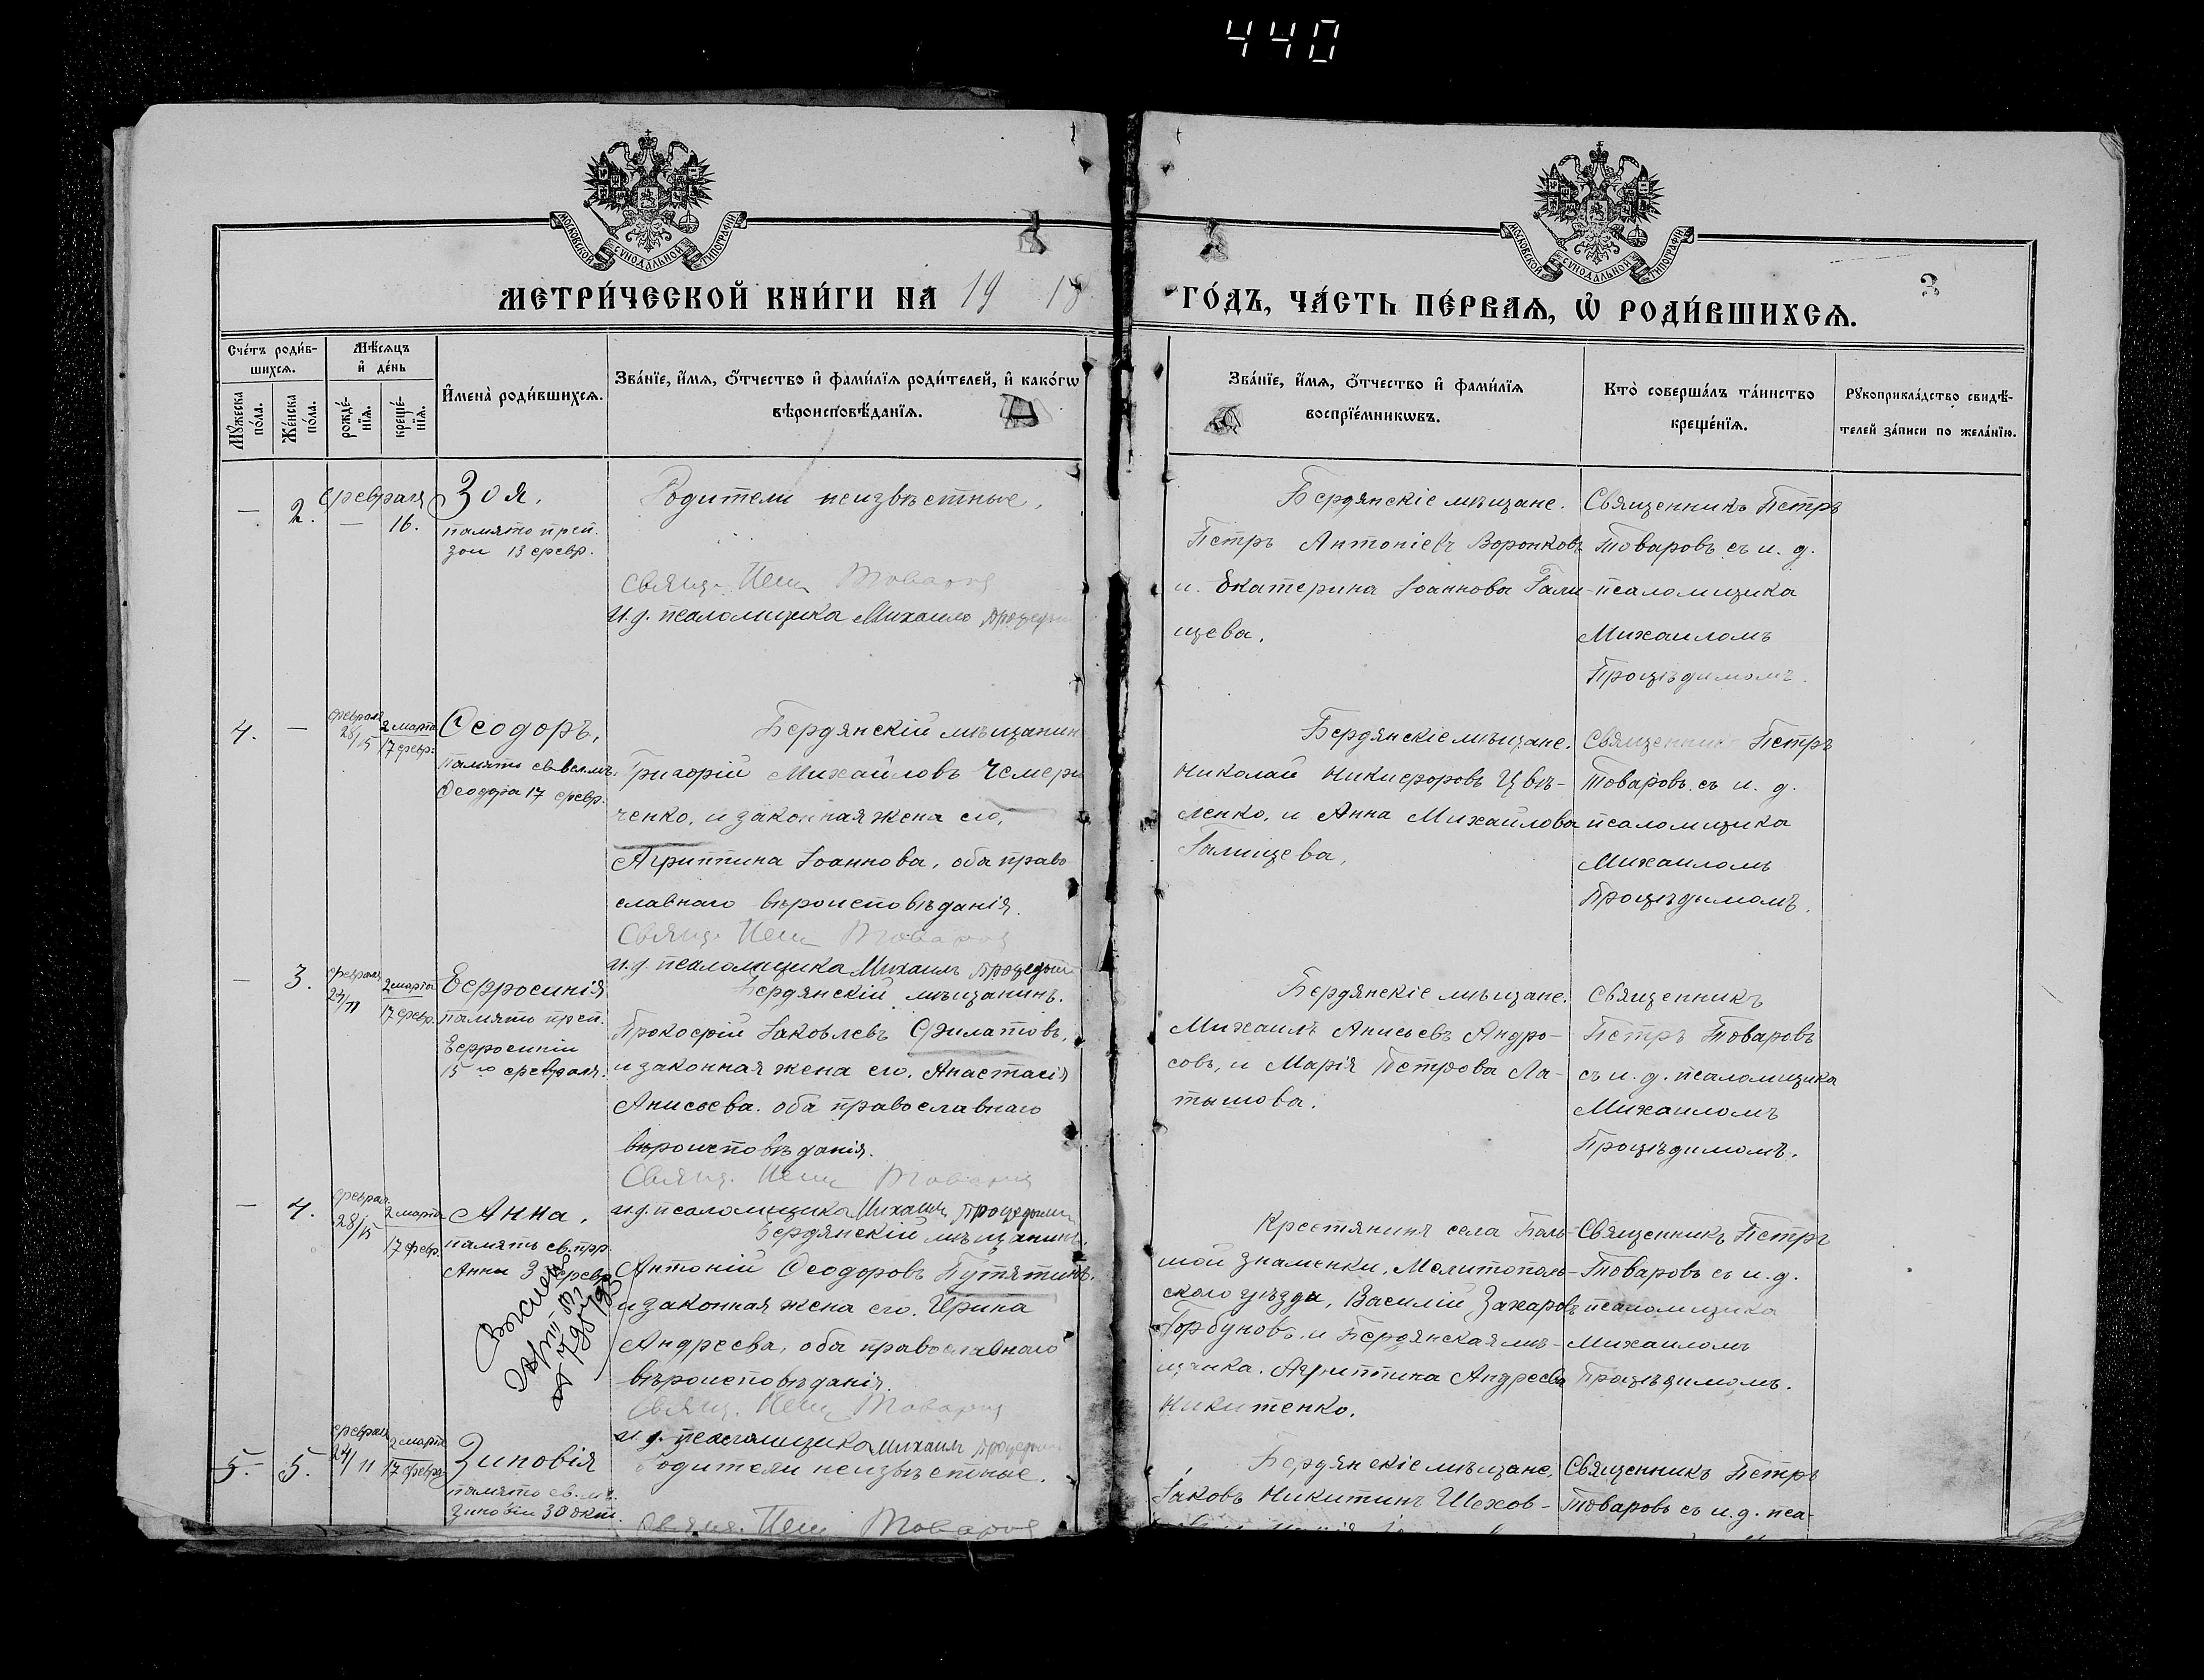 440
МОСКОВСКОЙ СѴНОДАЛЬНОЙ ТИПОГРАФІИ
МОСКОВСКОЙ СѴНОДАЛЬНОЙ ТИПОГРАФІИ
МЕТРИ́ЧЕСКОЙ КНИ́ГИ НА 19 18
ГО́ДЪ, ЧА́СТЬ ПЕ́РВАѦ, Ѡ҆ РОДИ́ВШИХСѦ.
3
Сче́тъ роди́в-
шихсѧ.
Мѣ́сѧцъ
и҆ де́нь
Мꙋ́жеска
по́ла.
Же́нска
по́ла.
рожде́-
нїѧ.
креще́-
нїѧ.
И҆мена̀ роди́вшихсѧ.
Зва́нїе, и҆́мѧ, ѻ҆́тчество и҆ фами́лїѧ роди́телей, и҆ како́гѡ
вѣроисповѣ́данїѧ.
Зва́нїе, и҆́мѧ, ѻ҆́тчество и҆ фами́лїѧ
воспрїе́мникѡвъ.
Кто̀ соверша́лъ та́инство
креще́нїѧ.
Рꙋкоприкла́дство свидѣ́-
телей за́писи по жела́нїю.
— 2. февраля
— 16.
Зоя.
память преп.
Зои 13 февр.
Родители неизвѣстные.
Свящ. Петр Товаров
И.д. псаломщика Михаилъ
Бердянскіе мѣщане.
Петръ Антоніевъ Воронковъ
и Екатерина Іоаннова Гали-
щева.
Священникъ Петръ
Товаровъ съ и. д.
псаломщика
Михаиломъ
Процѣдимомъ.
4. —
февраля
28/15
2 марта
17 февр.
Ѳеодоръ,
память св. вел. м.
Ѳеодора 17 февр.
Бердянскій мѣщанин
Григорій Михайловъ Чемери
ченко, и законная жена его,
Агриппина Іоаннова, оба право
славнаго вѣроисповѣданія.
Свящ. Петр Товаров
и.д. псаломщика Михаилъ
Бердянскіе мѣщане.
Николай Никифоровъ Цвѣ-
ленко, и Анна Михайлова
Галищева,
Священникъ Петръ
Товаровъ съ и. д.
псаломщика
Михаиломъ
Процѣдимомъ.
— 3.
февраля
24/11
2 марта
17 февр.
Евфросинія
память преп.
Евфросиніи
15 го февраля.
Бердянскій мѣщанинъ.
Прокофій Іаковлевъ Филатовъ,
и законная жена его, Анастасія
Анисьева. оба православнаго
вѣроисповѣданія.
Свящ. Петр Товаров
и.д. псаломщика Михаилъ
Бердянскіе мѣщане.
Михаилъ Анисьевъ Андро-
совъ, и Марія Петрова Ла-
тышова.
Священникъ
Петръ Товаровъ
съ и. д. псаломщика
Михаиломъ
Процѣдимомъ.
— 4.
февраля
28/15
2 марта
17 февр.
Анна.
память св. пр.
Анны 3 февр.
Бердянскій мѣщанинъ.
Антоній Ѳеодоровъ Путятинъ,
и законная жена его. Ирина
Андреева, оба православнаго
вѣроисповѣданія.
Свящ. Петр Товаров
и д. псаломщика Михаилъ
Крестянинъ села Боль-
шой Знаменки, Мелитополь-
скаго уѣзда, Василій Захаровъ
Горбуновъ. и Бердянская мѣ-
щанка. Агриппина Андреева
Никитенко.
Священникъ Петръ
Товаровъ съ и. д.
псаломщика
Михаиломъ
Процѣдимомъ.
5. 5.
февраля
24/11
2 марта
17 февр.
Зиновія
память св. м.
Зиновіи 30 окт.
Родители неизвѣстные.
Свящ. Петр Товаров
Бердянскіе мѣщане.
Іаковъ Никитинъ Шехов-
Священникъ Петръ
Товаровъ съ и. д. пса-